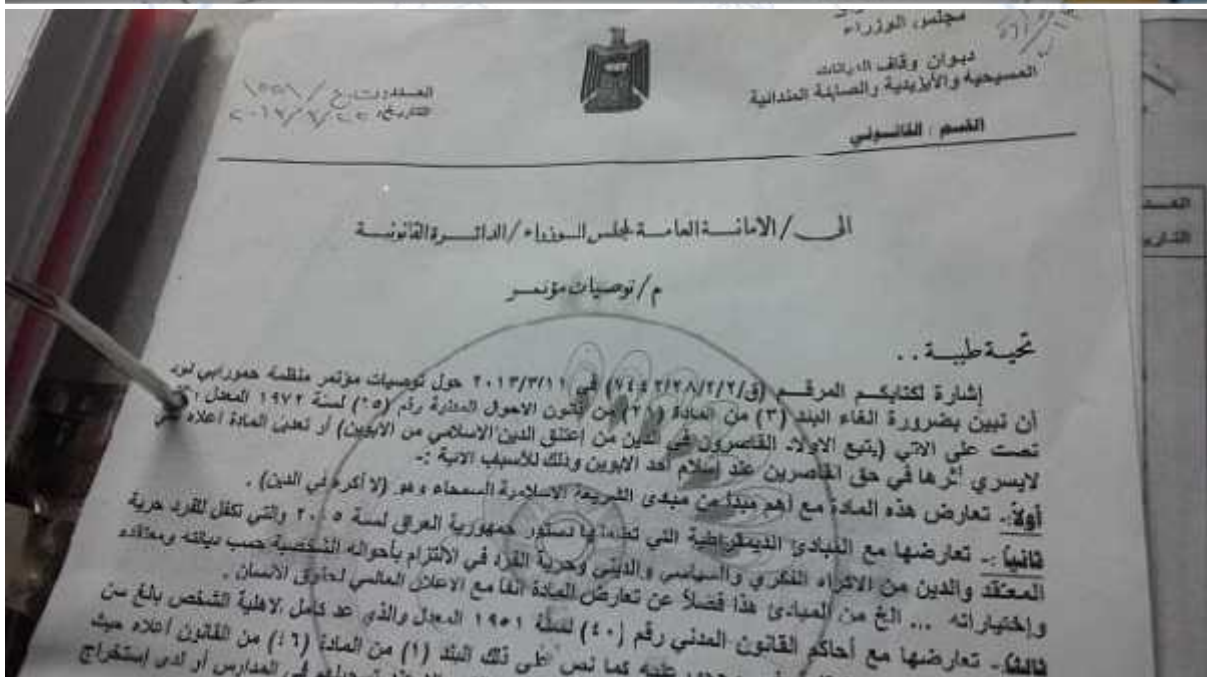 مجلس الوزراء
ديوان وقاف الديانات
المسيحية والأيزيدية والصابئة المندائية
القسم : القانوني
الى / الامانة العامة لمجلس الوزراء / الدائرة القانونية
م / توصيات مؤتمر
تحية طيبة . .
إشارة لكتابكم المرقم (ق/٢/٢/٢٨/٧٤٤٢) في ٢٠١٣/٣/١١ حول توصيات مؤتمر منظمة حمورابي نود
أن نبين بضرورة الغاء البند (٣) من المادة (٢١) من قانون الاحوال المدنية رقم (٦٥) لسنة ١٩٧٢ المعدل
نصت على الاتي (يتبع الاولاد القاصرون في الدين من إعتنق الدين الاسلامي من الابوين) أو تعديل المادة اعلاه
لايسري أثرها في حق القاصرين عند إسلام أحد الابوين وذلك للأسباب الاتية :-
أولاً. تعارض هذه المادة مع أهم مبدأ من مبادئ الشريعة الاسلامية السمحاء وهو (لا أكره في الدين) .
ثانياً :- تعارضها مع المبادئ الديمقراطية التي تضمنها دستور جمهورية العراق لسنة ٢٠٠٥ والتي تكفل للفرد حرية
المعتقد والدين من الاكراه الفكري والسياسي والديني وحرية الفرد في الالتزام بأحواله الشخصية حسب ديانته ومعتقده
وإختياراته ... الخ من المبادئ هذا فضلاً عن تعارض المادة أنفاً مع الاعلان العالمي لحقوق الانسان .
ثالثاً- تعارضها مع أحكام القانون المدني رقم (٤٠) لسنة ١٩٥١ المعدل والذي عد كامل الاهلية الشخص بالغ سن
عليه كما نص على ذلك البند (١) من المادة (٤٦) من القانون أعلاه حيث
في المدارس أو لدى إستخراج